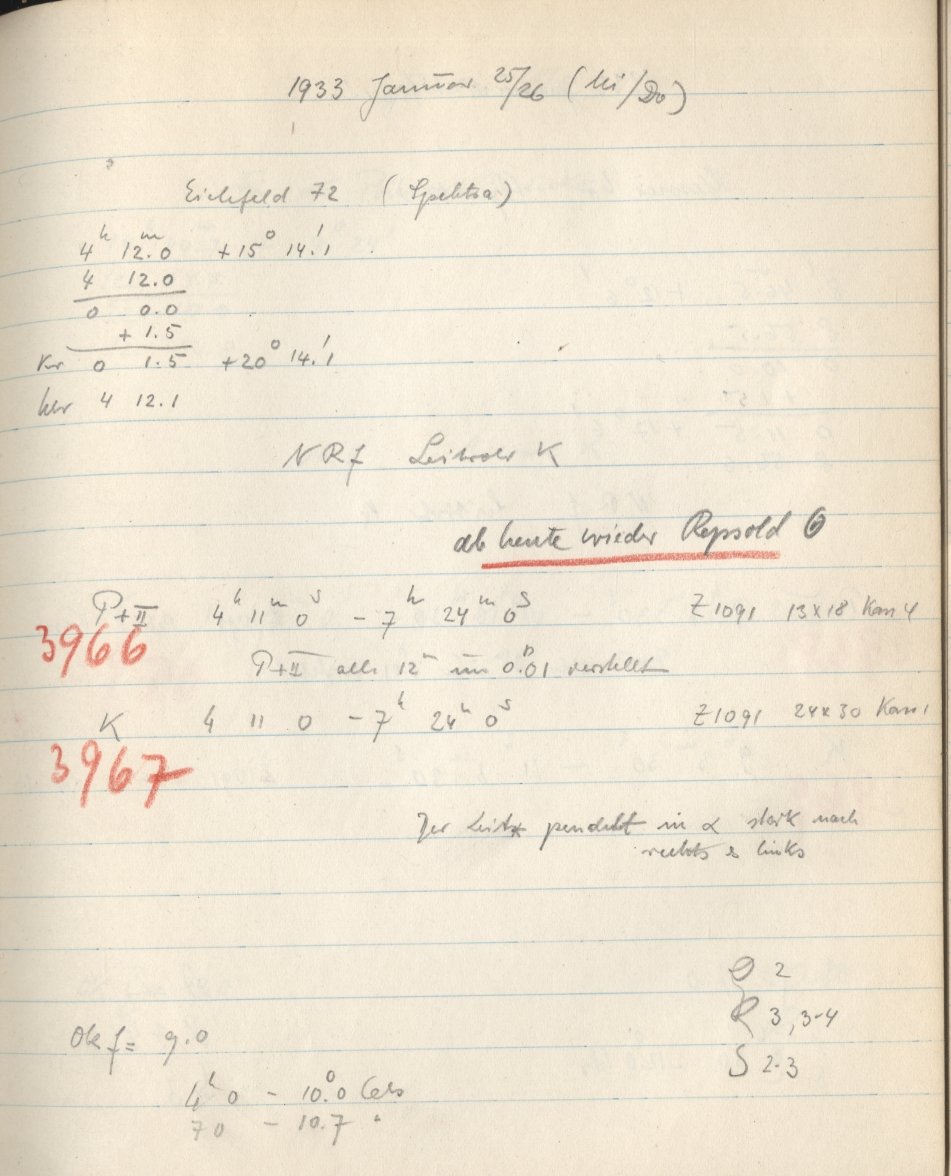 1933 Januar 25/26 (Mi/Do)
Eichfeld 72 (Spektra)
4ʰ 12.ᵐ0 +15° 14.′1
4 12.0
0 0.0
+ 1.5
Kr 0 1.5 +20° 14.′1
her 4 12.1
NRf K
ab heute wieder Repsold
P+II 4ʰ 11ᵐ 0ˢ - 7ʰ 24ᵐ 0ˢ Z1091 13x18 Kass 4
3966
P+II alle 12ᵐ um 0.01 verstellt
K 4 11 0 - 7ʰ 24ᵐ 0ˢ Z1091 24x30 Kass 1
3967
Der Leit* pendelt in α stark nach
rechts & links
2
R 3, 3-4
S 2-3
Okf = 9.0
4ʰ 0 - 10.°0 Cels
7 0 - 10.7 "